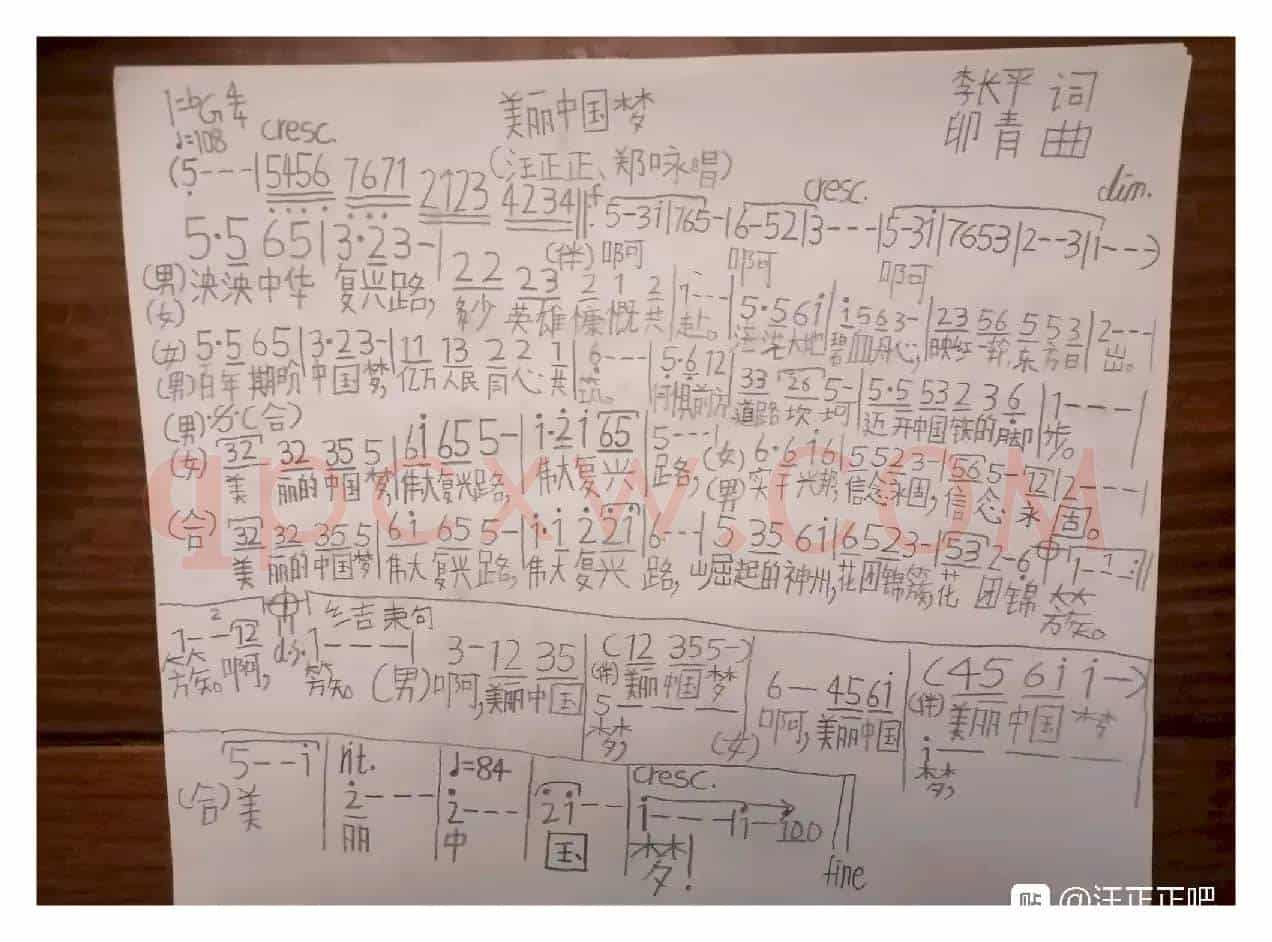 1=bG 4/4
♩=108 cresc.
美丽中国梦
李长平 词
印青 曲
(汪正正、郑咏唱)
(5---|5456 7671 2123 4234‖: f 5-3i|765-|6-52|3---|5-3i|7653|2--3|1---)
cresc. dim.
(伴)啊 啊 啊
5·5 65|3·23-|22 23 2 1 2|1---|5·56i|i563-|23 56 5 53|2---|
(男)泱泱中华 复兴路,多少 英雄慷慨共赴。茫茫大地碧血丹心,映红一轮东方日出。
(女)
5·5 65|3·23-|11 13 2 2 1|6---|5·6 12|33 26 5-|5·5 53 2 3 6|1----|
(女)百年期盼中国梦,亿万人民同心共筑。何惧前方道路坎坷,迈开中国铁的脚步。
(男)
(男)𝄋(合)
(女)
32 32 35 5|6i 65 5-|i·2i 65|5---|6·6i6|5523-|56 5-12|2----|
美 丽的中国梦,伟大复兴路,伟大复兴 路,(女)实干兴邦,信念永固,信念永 固。
(男)
(合) 32 32 35 5|6i 65 5-|i·i 2 2i|6---|5 35 6i|6523-|53 2-6 𝄌|1--1-:‖
美 丽的中国梦,伟大复兴路,伟大复兴 路,崛起的神州,花团锦簇,花 团锦 簇。
1---12 𝄌 结束句
d.s. 1----| 3-12 35 |(12 355-)| 6--456i |(45 6i i-)
簇。啊, 簇。(男)啊,美丽中国 (伴)美丽中国 梦 啊,美丽中国 (伴)美丽中国 梦
5--- i---
梦, (女) 梦,
rit. ♩=84 cresc.
5--i|2---|2---|2i--|i---|i-100‖
(合)美 丽 中 国 梦!
fine
qpcxw.COM
贴 @汪正正吧